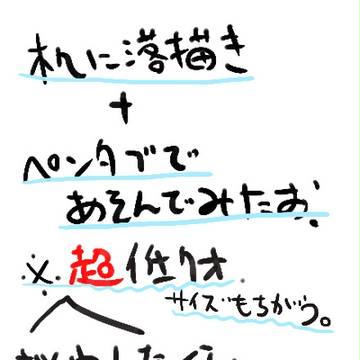 机に落描き
+
ペンタブで
あそんでみたお!
※超低クオ
サイズもちがう。